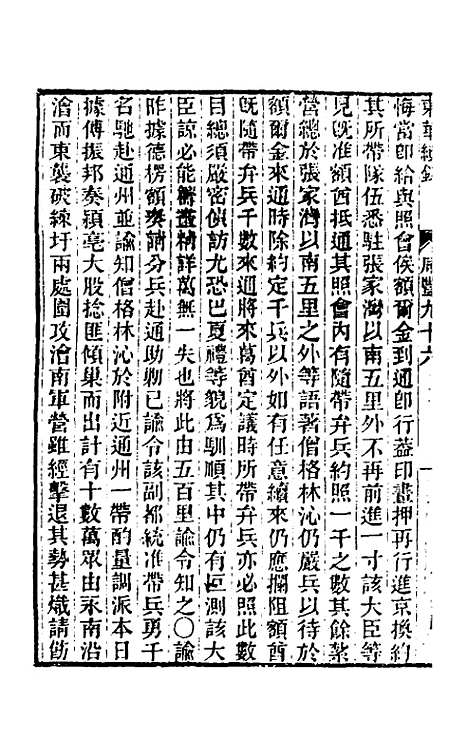 東華續錄 咸豐九十六
悔當卽給與照會俟額爾金到通卽行蓋印畫押再行進京換約
其所帶隊伍悉駐張家灣以南五里外不再前進一寸該大臣等
見旣准額酋抵通其照會內有隨帶弁兵約照一千之數其餘紮
營總於張家灣以南五里之外等語著僧格林沁仍嚴兵以待於
額爾金來通時除約定千兵以外如有任意續來仍應攔阻額酋
旣隨帶弁兵千數來通將來萬酋定議時所帶弁兵亦必照此數
目總須嚴密偵訪尤恐巴夏禮等貌爲馴順其中仍有叵測該大
臣諒必能籌畫精詳萬無一失也將此由五百里諭令知之〇諭
昨據德楞額奏請分兵赴通助勦已諭令該副都統准帶兵勇千
名馳赴通州並諭知僧格林沁於附近通州一帶酌量調派本日
據傅振邦奏潁亳大股捻匪傾巢而出計有十數萬眾由永南沿
澮而東襲破練圩兩處圍攻澮南軍營雖經擊退其勢甚熾請飭